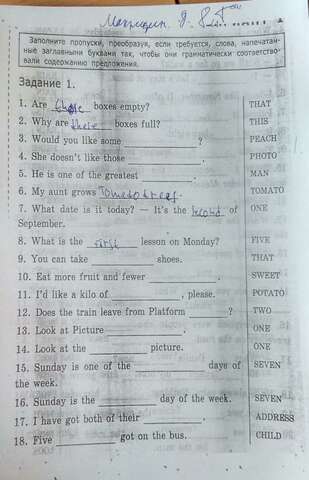 Заполните пропуски, преобразуя, если требуется, слова, напечатан-
ные заглавными буквами так, чтобы они грамматически соответство-
вали содержанию предложения.
Задание 1.
1. Are these boxes empty? THAT
2. Why are these boxes full? THIS
3. Would you like some ____________? PEACH
4. She doesn't like those ____________. PHOTO
5. He is one of the greatest ____________. MAN
6. My aunt grows tomatoes. TOMATO
7. What date is it today? — It's the second of ONE
September.
8. What is the first lesson on Monday? FIVE
9. You can take ____________ shoes. THAT
10. Eat more fruit and fewer ____________. SWEET
11. I'd like a kilo of ____________, please. POTATO
12. Does the train leave from Platform ________? TWO
13. Look at Picture ____________. ONE
14. Look at the ____________ picture. ONE
15. Sunday is one of the ____________ days of SEVEN
the week.
16. Sunday is the ____________ day of the week. SEVEN
17. I have got both of their ____________. ADDRESS
18. Five ____________ got on the bus. CHILD